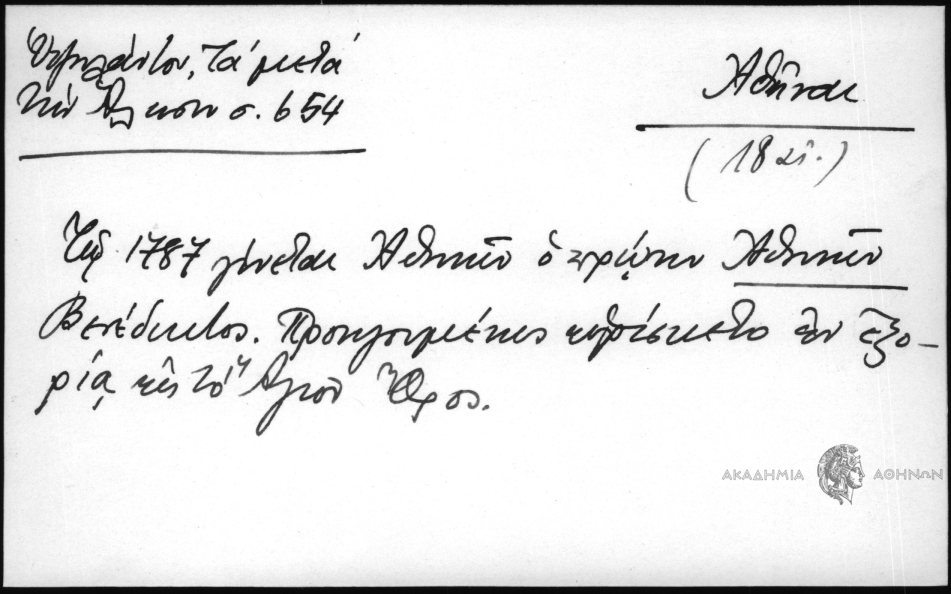 Ὑψηλάντου, Τὰ μετὰ
τὴν Ἅλωσιν σ. 654
Ἀθῆναι
(18 αἰ.)
Τῷ 1787 γίνεται Ἀθηνῶν ὁ πρώην Ἀθηνῶν
Βενέδικτος. Προηγουμένως εὑρίσκετο ἐν ἐξο-
ρίᾳ εἰς τὸ Ἅγιον Ὄρος.
ΑΚΑΔΗΜΙΑ ΑΘΗΝΩΝ